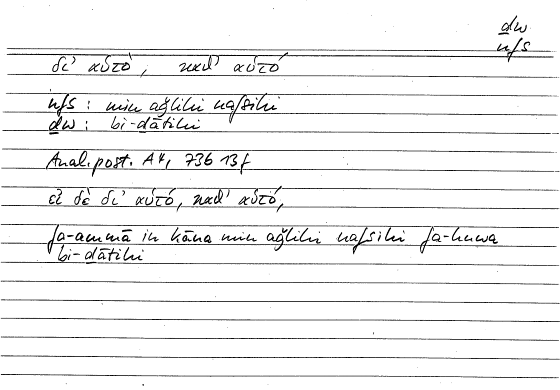 ḏw
nfs
δι' αὑτό, καθ' αὑτό
nfs : min aǧlihi nafsihi
ḏw : bi-ḏātihi
Anal. post. A 4, 73b 13f
εἰ δὲ δι' αὑτό, καθ' αὑτό,
fa-ammā in kāna min aǧlihi nafsihi fa-huwa
bi-ḏātihi